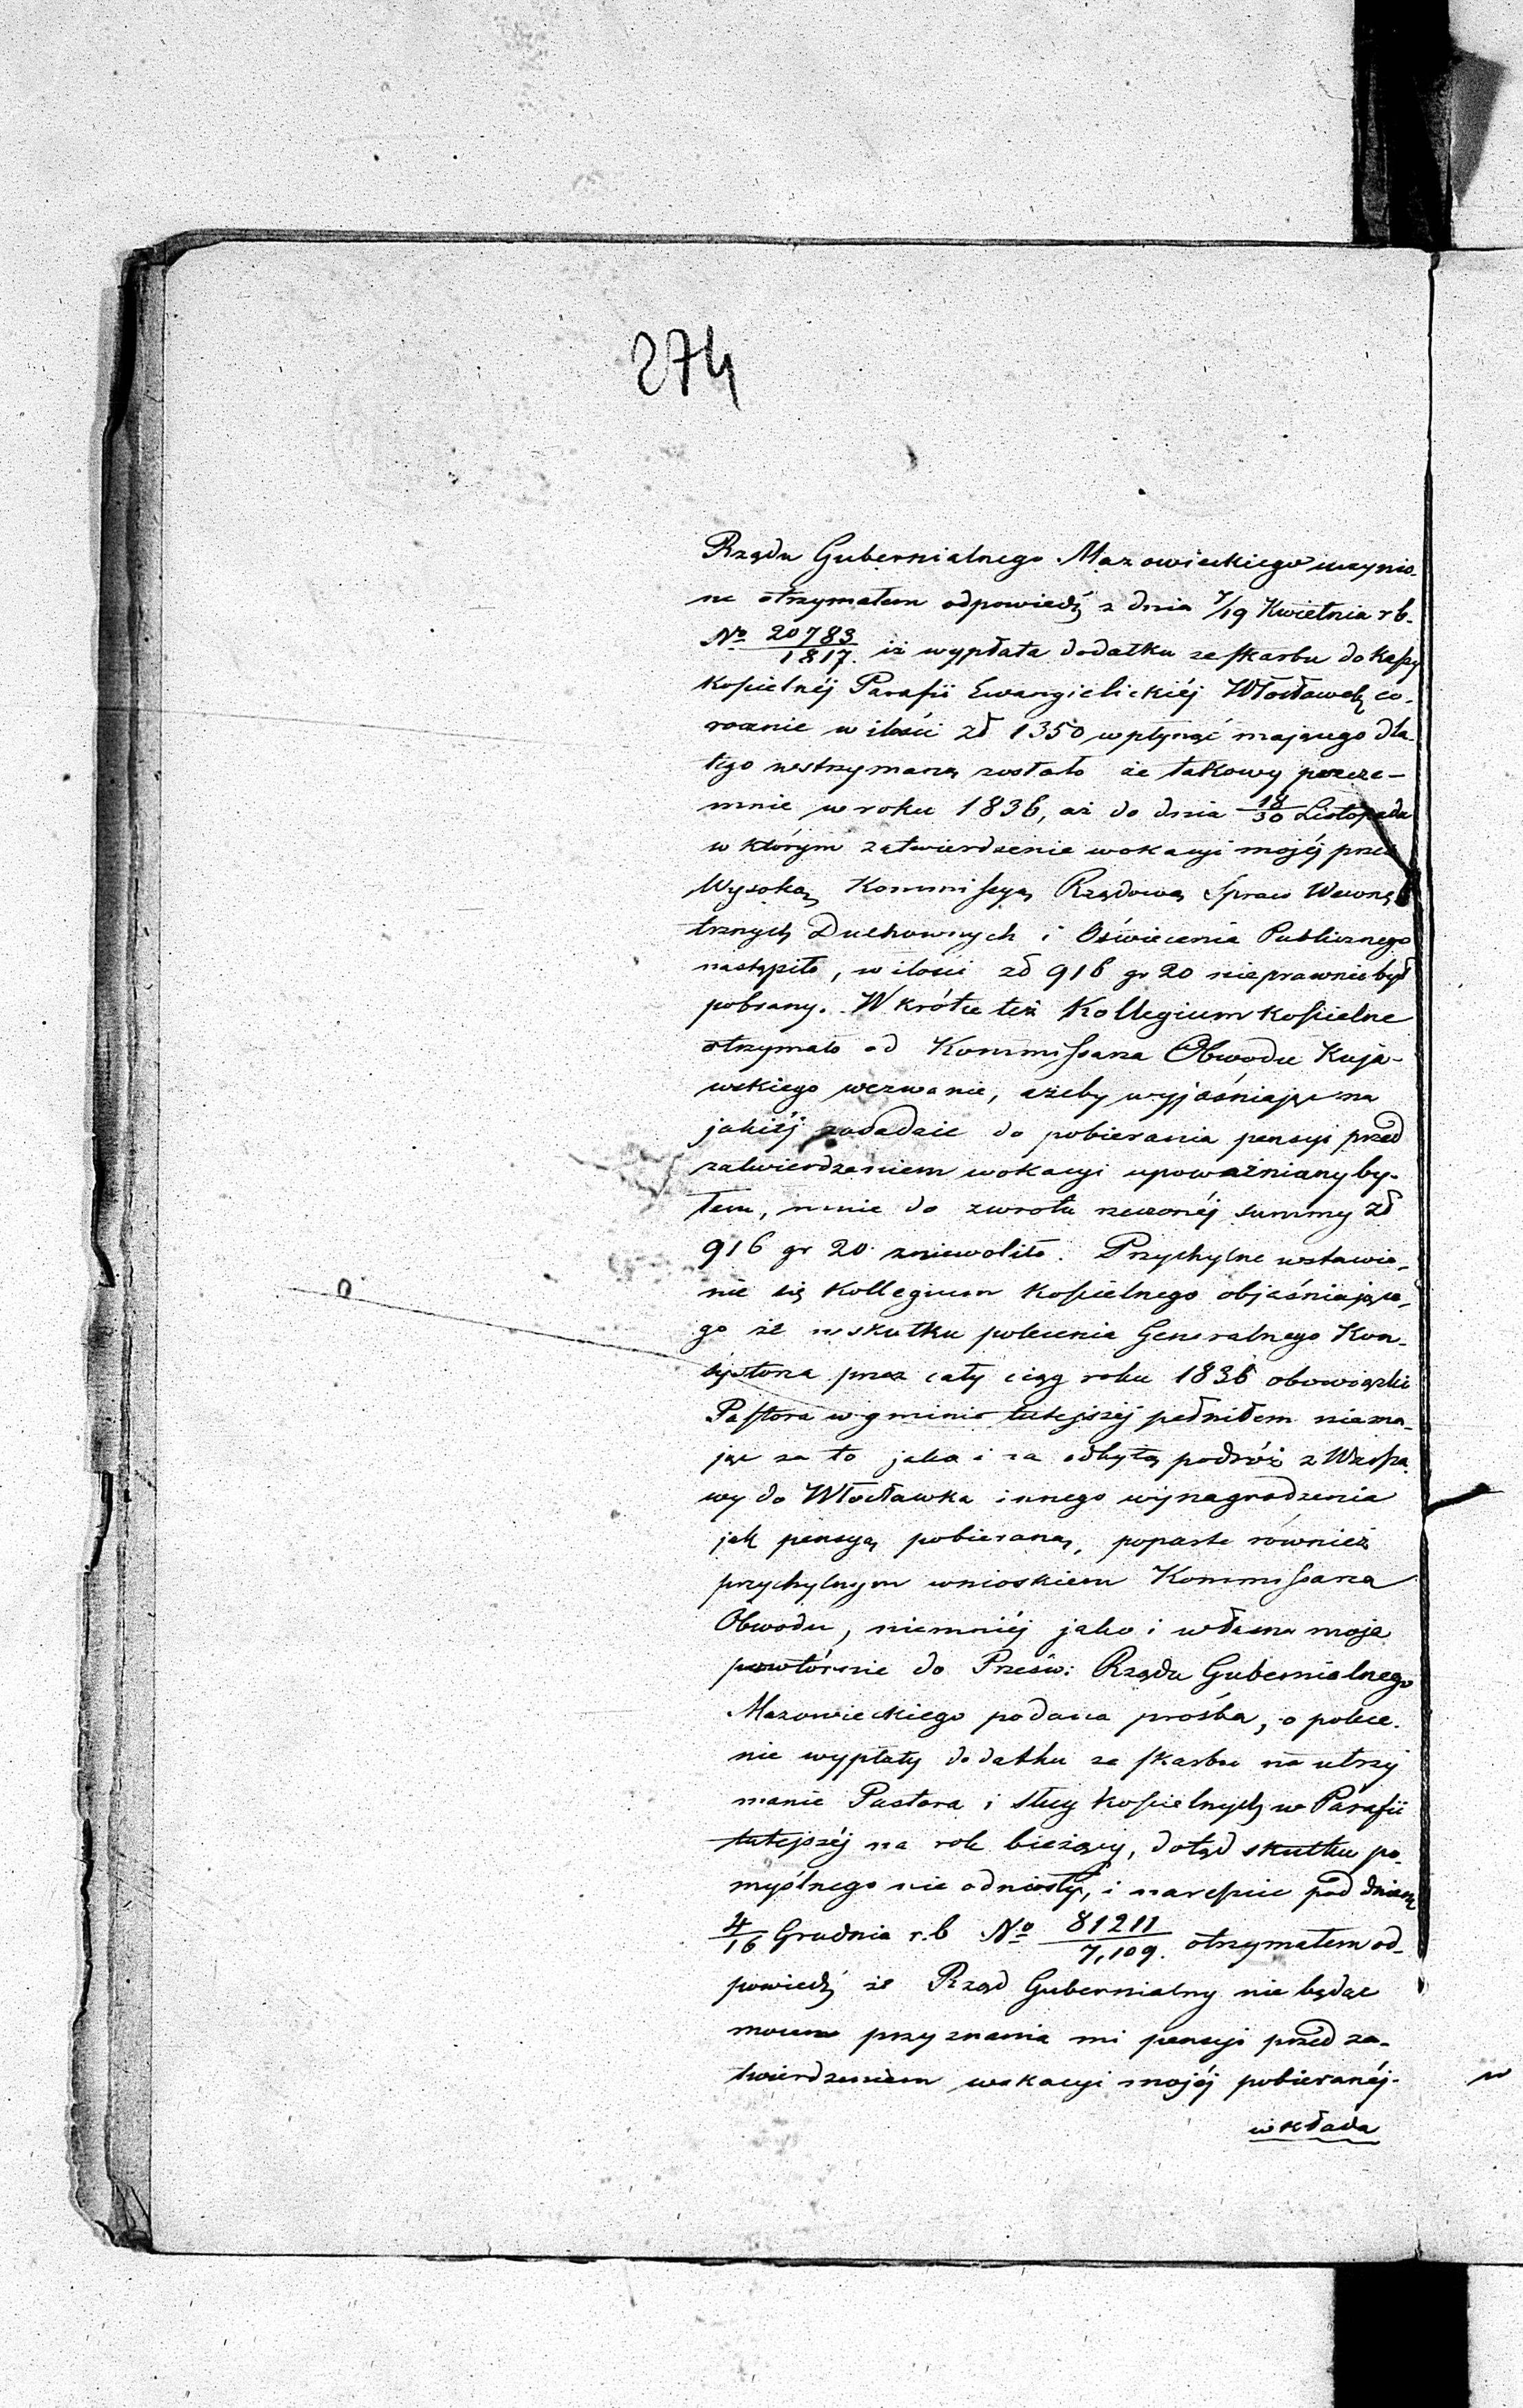 274
Rządu Gubernialnego Mazowieckiego uczynio-
ne otrzymałem odpowiedź z dnia 7/19 Kwietnia r b.
No 20783/1817. iż wypłata dodatku ze skarbu do kassy
kościelnéj Parafii Ewangielickiéj Włocławek co-
rocznie w ilości zł 1350 wpłynąć mającego dla-
tego wstrzymaną zostało że takowy przeze-
mnie w roku 1836, aż do dnia 18/30 Listopada
w którym zatwierdzenie wokacyi mojéj przez
Wysoką Kommissyą Rządową Spraw Wewnę-
trznych Duchownych i Oświecenia Publicznego
nastąpiło, w ilości zł 916 gr 20 nieprawnie był
pobrany. Wkrótce też Kollegium kościelne
otrzymało od Kommissarza Obwodu Kuja-
wskiego wezwanie, ażeby wyjaśniając na
jakiéj zasadzie do pobierania pensyi przed
zatwierdzeniem wokacyi upoważniany by-
łem, mnie do zwrotu rzeczonéj summy zł
916 gr 20 zniewoliło. Przychylne wstawie-
nie się Kollegium Kościelnego objaśniające-
go że wskutku polecenia Generalnego Kon-
systorza przez cały ciąg roku 1836 obowiązki
Pastora w gminie tutejszéj pełniłem niema-
jąc za to jako i za odbytą podróż z Warsza-
wy do Włocławka innego wynagrodzenia
jak pensyą pobieraną, poparte również
przychylnym wnioskiem Kommissarza
Obwodu, niemniéj jako i własna moja
powtórnie do Prześw: Rządu Gubernialnego
Mazowieckiego podana prośba, o polece-
nie wypłaty dodatku ze skarbu na utrzy
manie Pastora i sług kościelnych w Parafii
tutejszéj na rok bieżący, dotąd skutku po-
myślnego nie odniosły, i nareście pod dniem
4/16 Grudnia r.b No 81211/7,109. otrzymałem od-
powiedź że Rząd Gubernialny nie będąc
mocen przyznania mi pensyi przed za-
twierdzeniem wokacyi mojéj pobieranéj-
wkłada